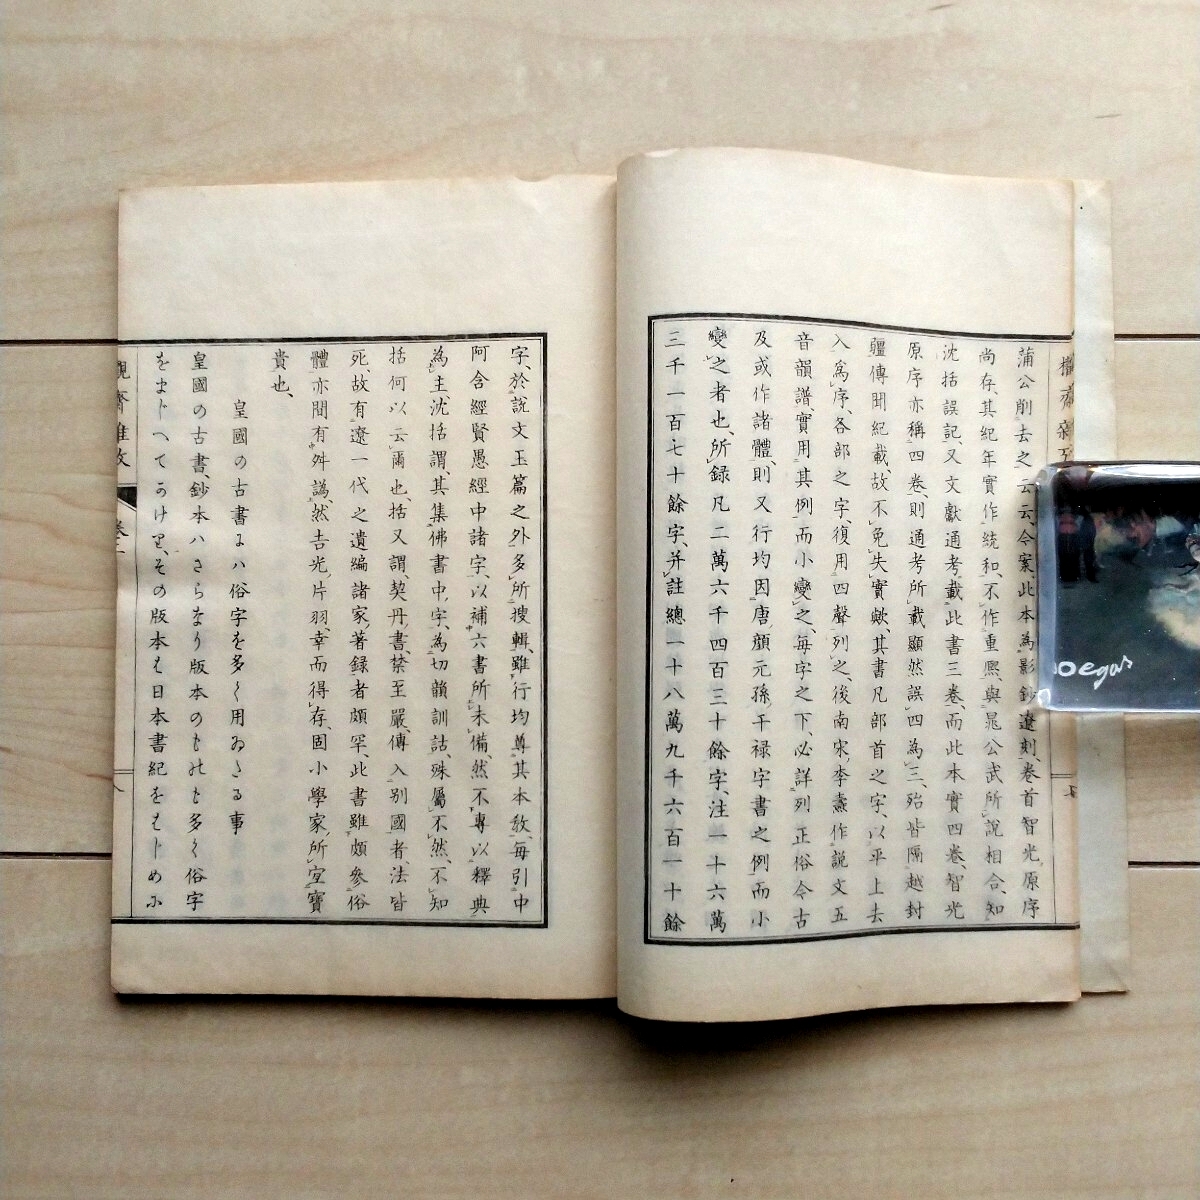 蒲公削去之云云、今案、此本為影鈔遼刻、卷首智光原序
尚存、其紀年實作統和、不作重熙、與晁公武所說相合、知
沈括誤記、又文獻通考載此書三卷、而此本實四卷、智光
原序亦稱四卷、則通考所載顯然誤四為三、殆皆隔越封
疆傳聞紀載、故不免失實歟、其書凡部首之字、以平上去
入為序、各部之字、復用四聲列之、後南宋李燾作說文五
音韻譜、實用其例而小變之、每字之下、必詳列正俗今古
及或作諸體、則又行均因唐顏元孫干祿字書之例而小
變之者也、所錄凡二萬六千四百三十餘字、注一十六萬
三千一百七十餘字、并註總一十八萬九千六百一十餘
字、於說文玉篇之外、多所搜輯、雖行均尊其本教、每引中
阿含經賢愚經中諸字、以補六書所未備、然不專以釋典
為主、沈括謂、其集佛書中字、為切韻訓詁、殊屬不然、不知
括何以云爾也、括又謂、契丹書禁至嚴、傳入別國者、法皆
死、故有遼一代之遺編諸家著錄者頗罕、此書雖頗參俗
體、亦間有舛譌、然吉光片羽、幸而得存、固小學家所宜寶
貴也、
皇國の古書には俗字を多く用ゐたる事
皇國の古書、鈔本ハさらなり版本のものも多く俗字
をまじへてかけり、その版本は日本書紀をはじめに
卷一
八
oegas